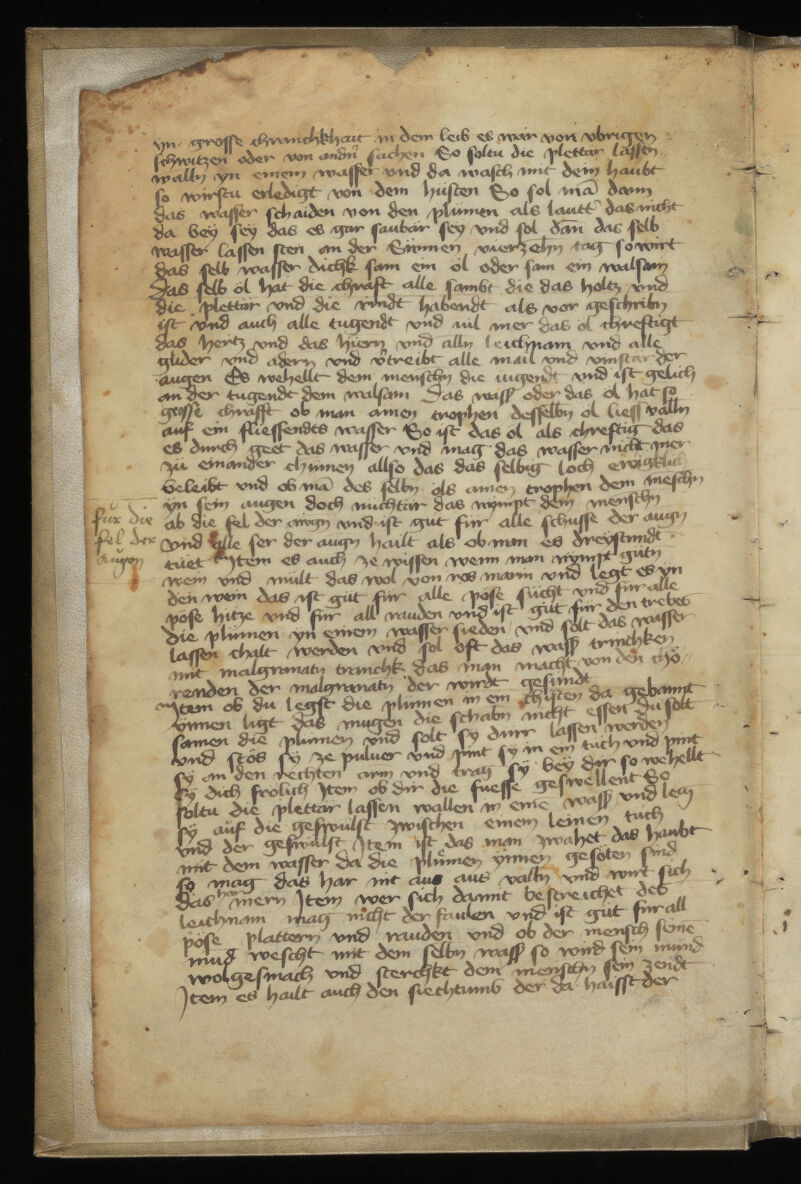 yn grosse chranchkhait in dem leib es war von vbrigen
schwitzen oder von andn sachen So soltu die plettar lassen
walln yn einem wasser vnd da wasch mit dem haubt
so wirstu erledigt von dem husten So sol mā dann
das wasser schaiden von den plumen als lautt das nicht
da bey sey das es gar saubar sey vnd sol dan das selb
wasser lassen sten an der Sunnen vierzehn tag so wirt
das selb wasser dickh sam ein ol oder sam ein walsam
Das selb ol hat die chraft alle sambt die das holtz vnd
die plettar vnd die rindt habendt als vor geschribn
ist vnd auch alle tugendt vnd vil mer das ol chreftigt
das hertz vnd das hiern vnd alln leichnam vnd alle
glider vnd adern vnd vtreibt alle mail vnd vinstar der
augen Es wehellt dem menschn die iugendt vnd ist gelich
an der tugendt dem walsam Das wass oder das ol hat so
grosse chrafft ob man ainen trophen desselbn ol liess valln
auf ein fliessendts wasser So ist das ol als chreftig das
es durch geet das wasser vnd mag das wasser nicht mer
zu einander chumen allso das das selbig loch
beleibt vnd ob mā des selbn ols ainen trophen dem meschn
yn sein augen doch nuchtar das nympt dem menschn
ab die fel der awgn vnd ist gut fur alle schusse der augn
fur die
fel der
augen
vnd alle ser der augn hailt als ob man es dreystundt
tuet Item es auch ze wissen wenn man nympt gutn
wein vnd mult das wol von ros marin vnd legt es yn
den wein das ist gut fur alle pose sucht vnd fur alle
pose hitze vnd fur all rauden vnd ist gut fur den trebes
die plumen yn einem wasser sieden vnd solt das wasser
lassen chalt werden vnd sol oft das wass trinchken
mit malgranatn tranchk das man macht von den
renden der malgranatn der wirdt gesundt
Item ob du legst die plumen in ein chisten da gebannt
ynnen ligt das mugen die schabn nicht essen du solt
samen die plumen vnd solt sy durr lassen werden
vnd stos sy ze puluer vnd pint sy in ein tuch vnd pint
sy an den rechten arm vnd trag sy bey dir so wehellt
sy dich frolich Item ob dir die fuesse geswellent So
soltu die plettar lassen wallen in eine wass vnd leg
sy auf die geswulst zwischen einem leinen tuch
vnd der geswulst Item ist das man zwahet das haubt
mit dem wasser da die plumen ynnen gesoten sind
so mag das har nit aus aus valln vnd wirt sich
das har mern Item wer sich damit bestreichet des
leichnam mag nicht der faulen vnd ist gut fur all
pose plattern vnd rauden vnd ob der mensch seine
mud wescht mit dem selbn wass so wird sein mund
wolgesmach vnd sterchkt dem menschn sein zendt
Item es hailt auch den siechtumb der da haisst der